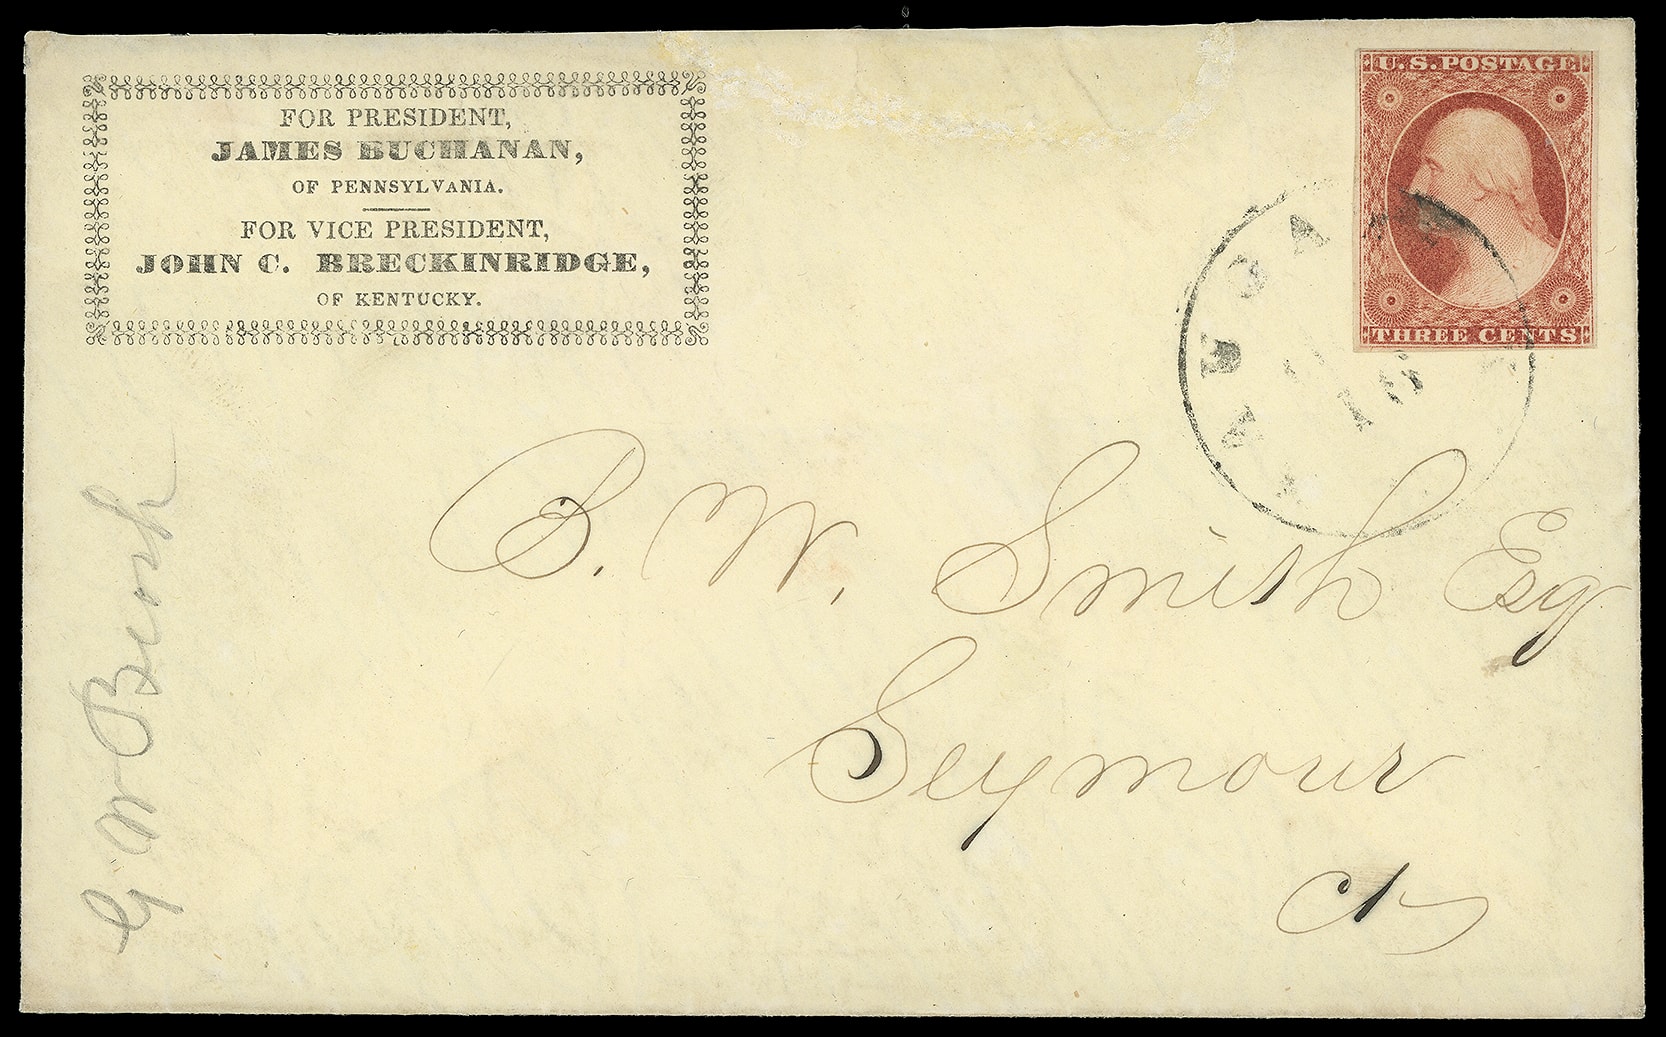 FOR PRESIDENT,
JAMES BUCHANAN,
OF PENNSYLVANIA.
FOR VICE PRESIDENT,
JOHN C. BRECKINRIDGE,
OF KENTUCKY.
U.S. POSTAGE
THREE CENTS
16
B. W. Smith Esq
Seymour
Ct
G W